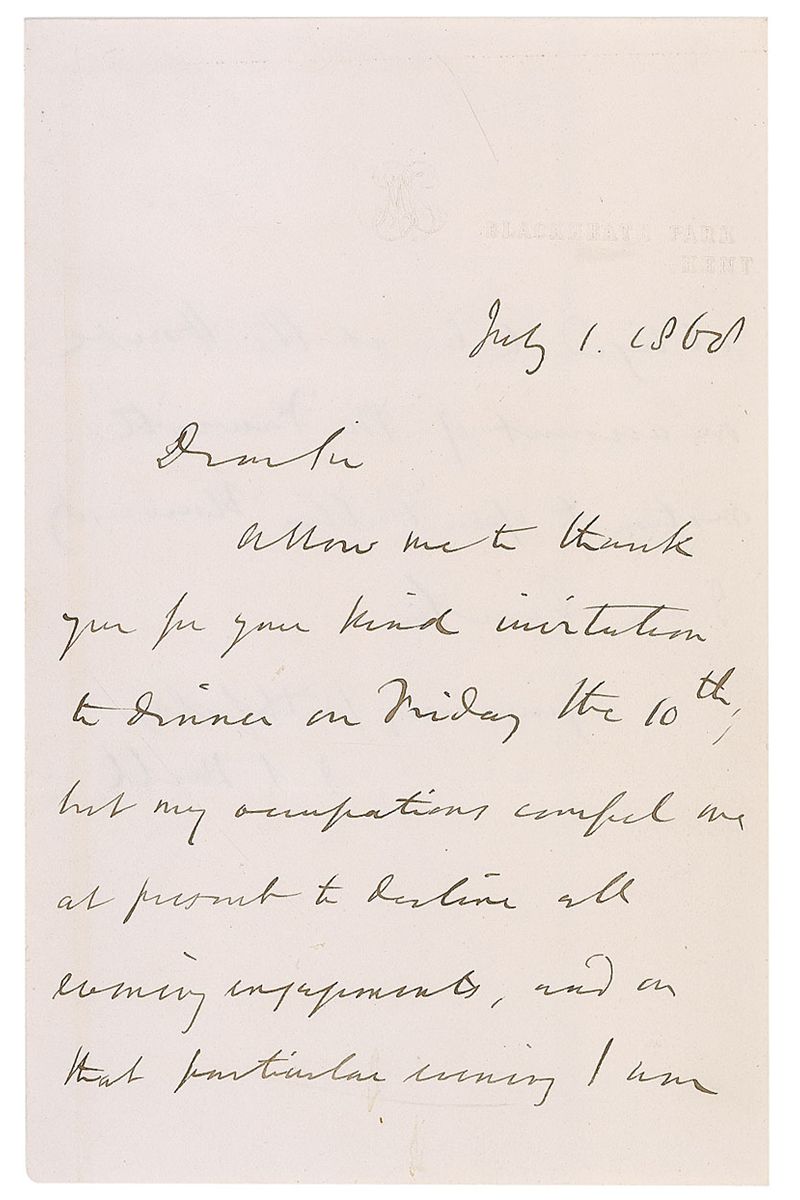 BLACKHEATH PARK
KENT
July 1. 1868
Dear Sir
Allow me to thank
you for your kind invitation
to dinner on Friday the 10th,
but my occupations compel me
at present to decline all
evening engagements, and on
that particular evening I am